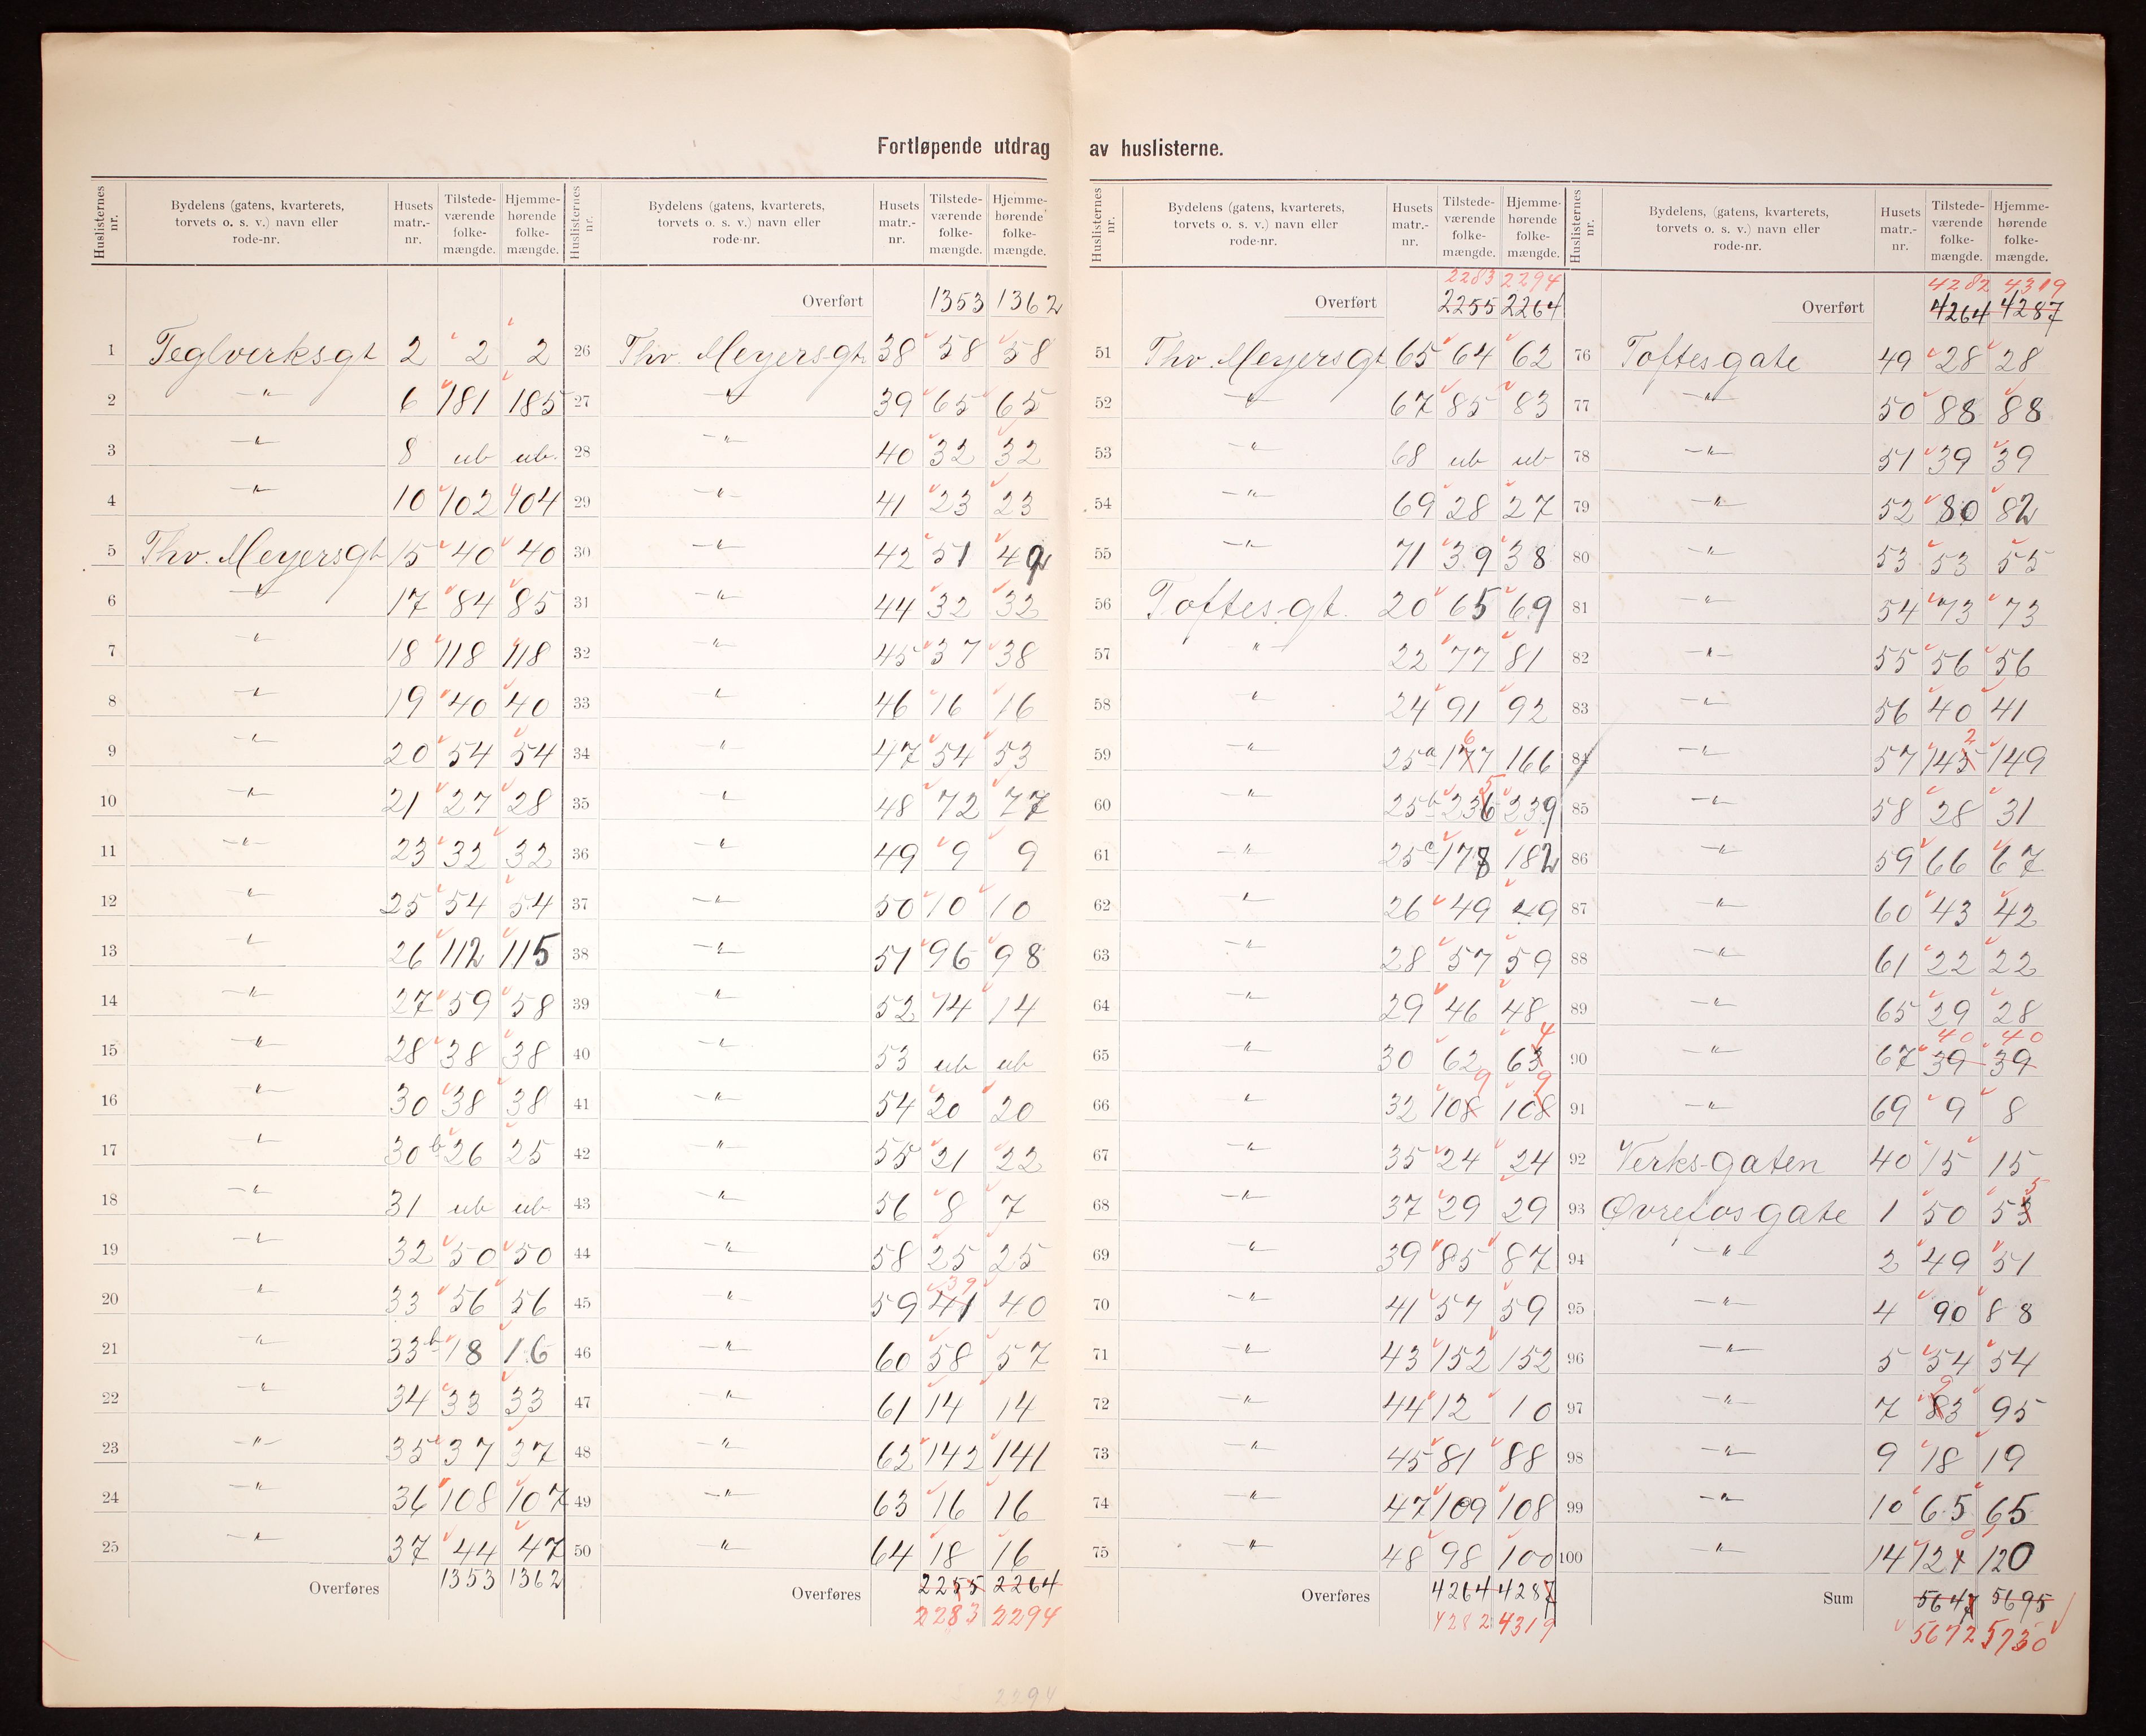 Fortløpende utdrag av huslisterne.
Huslisternes nr. | Bydelens (gatens, kvarterets, torvets o. s. v.) navn eller rode-nr. | Husets matr.-nr. | Tilstede-værende folke-mængde. | Hjemme-hørende folke-mængde.
1 Teglverksgt 2 2 2
2 —"— 6 181 185
3 —"— 8 ub ub.
4 —"— 10 102 104
5 Thv. Meyersgt 15 40 40
6 —"— 17 84 85
7 —"— 18 118 118
8 —"— 19 40 40
9 —"— 20 54 54
10 —"— 21 27 28
11 —"— 23 32 32
12 —"— 25 54 54
13 —"— 26 112 115
14 —"— 27 59 58
15 —"— 28 38 38
16 —"— 30 38 38
17 —"— 30b 26 25
18 —"— 31 ub ub
19 —"— 32 50 50
20 —"— 33 56 56
21 —"— 33b 18 16
22 —"— 34 33 33
23 —"— 35 37 37
24 —"— 36 108 107
25 —"— 37 44 47
Overføres 1353 1362
Huslisternes nr. | Bydelens (gatens, kvarterets, torvets o. s. v.) navn eller rode-nr. | Husets matr.-nr. | Tilstede-værende folke-mængde. | Hjemme-hørende folke-mængde.
Overført 1353 1362
26 Thv. Meyersgt 38 58 58
27 —"— 39 65 65
28 —"— 40 32 32
29 —"— 41 23 23
30 —"— 42 51 49
31 —"— 44 32 32
32 —"— 45 37 38
33 —"— 46 16 16
34 —"— 47 54 53
35 —"— 48 72 77
36 —"— 49 9 9
37 —"— 50 10 10
38 —"— 51 96 98
39 —"— 52 14 14
40 —"— 53 ub ub
41 —"— 54 20 20
42 —"— 55 21 22
43 —"— 56 8 7
44 —"— 58 25 25
45 —"— 59 41 39 40
46 —"— 60 58 57
47 —"— 61 14 14
48 —"— 62 142 141
49 —"— 63 16 16
50 —"— 64 18 16
Overføres 2255 2264
2283 2294
Huslisternes nr. | Bydelens (gatens, kvarterets, torvets o. s. v.) navn eller rode-nr. | Husets matr.-nr. | Tilstede-værende folke-mængde. | Hjemme-hørende folke-mængde.
2283 2294
Overført 2255 2264
51 Thv. Meyersgt 65 64 62
52 —"— 67 85 83
53 —"— 68 ub ub
54 —"— 69 28 27
55 —"— 71 39 38
56 Toftes gt. 20 65 69
57 " 22 77 81
58 —"— 24 91 92
59 —"— 25a 177 6 166
60 —"— 25b 236 5 239
61 —"— 25c 178 182
62 —"— 26 49 49
63 —"— 28 57 59
64 —"— 29 46 48
65 —"— 30 62 63 4
66 —"— 32 108 9 108 9
67 —"— 35 24 24
68 —"— 37 29 29
69 —"— 39 85 87
70 —"— 41 57 59
71 —"— 43 152 152
72 —"— 44 12 10
73 —"— 45 81 88
74 —"— 47 109 108
75 —"— 48 98 100
Overføres 4264 4287
4282 4319
Huslisternes nr. | Bydelens, (gatens, kvarterets, torvets o. s. v.) navn eller rode-nr. | Husets matr.-nr. | Tilstede-værende folke-mængde. | Hjemme-hørende folke-mængde.
4282 4319
Overført 4264 4287
76 Toftes gate 49 28 28
77 —"— 50 88 88
78 —"— 51 39 39
79 —"— 52 80 82
80 —"— 53 53 55
81 —"— 54 73 73
82 —"— 55 56 56
83 —"— 56 40 41
84 —"— 57 145 2 149
85 —"— 58 28 31
86 —"— 59 66 67
87 —"— 60 43 42
88 —"— 61 22 22
89 —"— 65 29 28
90 —"— 67 39 40 39 40
91 —"— 69 9 8
92 Verks-gaten 40 15 15
93 Øvrefos gate 1 50 53 5
94 —"— 2 49 51
95 —"— 4 90 88
96 —"— 5 54 54
97 —"— 7 83 9 95
98 —"— 9 18 19
99 —"— 10 65 65
100 —"— 14 121 0 120
Sum 5647 5695
5672 5730
2294